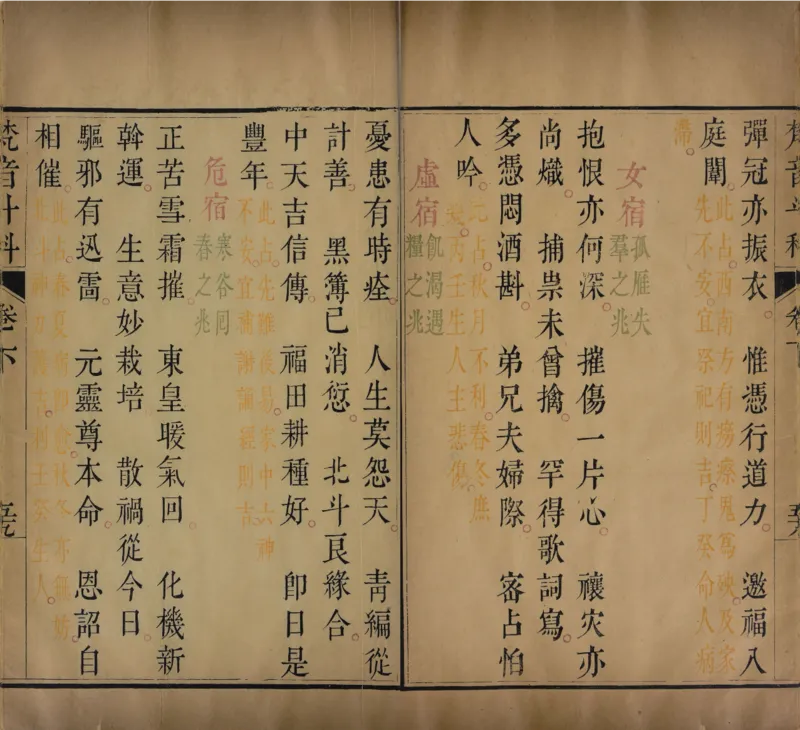 梵音斗科 卷下
彈冠亦振衣。 惟憑行道力。 邀福入
庭闈。
此占西南方有癆瘵鬼為殃及家
先不安宜祭祀則吉丁癸命人病
滯。
女宿
孤雁失
羣之兆
抱恨亦何深。 摧傷一片心。 禳灾亦
尚熾。 捕祟未曾擒。 罕得歌詞寫。
多憑悶酒斟。 弟兄夫婦際。 密占怕
人吟。
占秋月不利春冬庶
丙壬生人主悲傷。
虛宿
飢渴遇
糧之兆
憂患有時痊。 人生莫怨天。 青編從
計善。 黑簿已消愆。 北斗良緣合。
中天吉信傳。 福田耕種好。 即日是
豐年。
此占先難後易家中六神
不安宜禱謝誦經則吉
危宿
寒谷囘
春之兆
正苦雪霜摧。 東皇暖氣回。 化機新
斡運。 生意妙栽培。 散禍從今日。
驅邪有迅雷。 元靈尊本命。 恩詔自
相催。
此占春夏 秋冬亦無妨
北斗神力 吉利壬癸生人。
梵音斗科 卷下